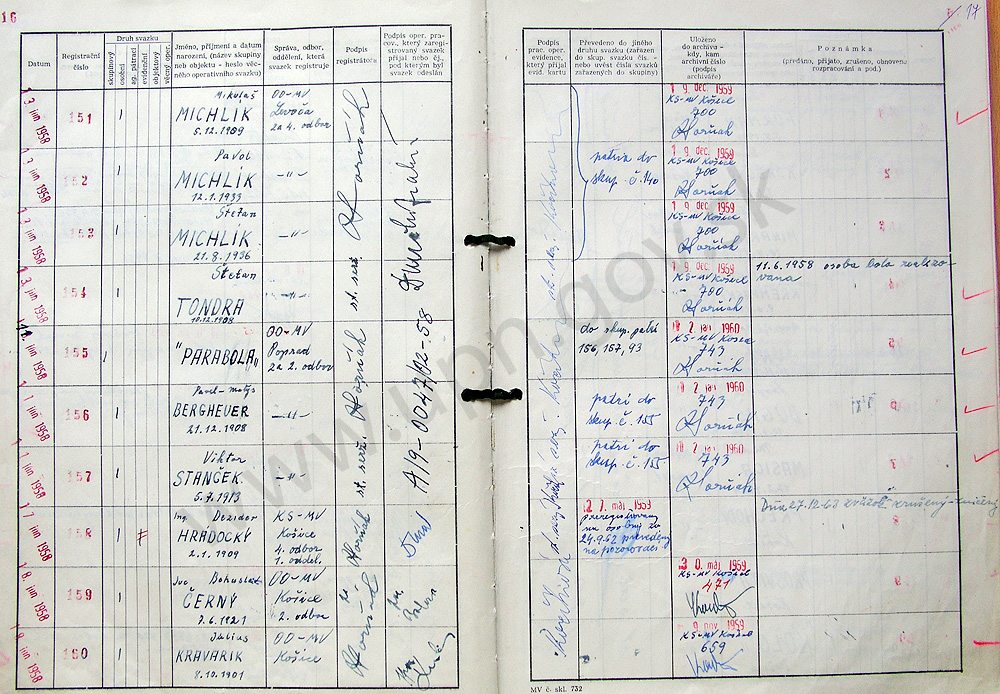 16
Datum
Registrační číslo
Druh svazku
skupinový
osobní
ag. pátrací
evidenční
objektový
věcný oper.
Jméno, příjmení a datum
narození, (název skupiny
neb objektu - heslo věcného operativního svazku)
Správa, odbor,
oddělení, která
svazek registruje
Podpis
registrátora
Podpis oper. pracov., který zaregistrovaný svazek
přijal nebo čj.,
pod kterým byl
svazek odeslán
13. jún 1958
151
Mikuláš
MICHLÍK
5.12.1909
OO-MV
Levoča
2a 4. odbor
13. jún 1958
152
Pavol
MICHLÍK
12.1.1933
-"-
13. jún 1958
153
Štefan
MICHLÍK
21.8.1936
-"-
13. jún 1958
154
Štefan
TONDRA
10.12.1908
-"-
jún 1958
155
"PARABOLA"
OO-MV
Poprad
2a 2. odbor
jún 1958
156
Pavel-Matys
BERGHEUER
21.12.1908
-"-
jún 1958
157
Viktor
STANČEK
-"-
17. jún 1958
158
Ing. Dezider
HRADOCKÝ
2.1.1909
KS-MV
Košice
4. odbor
1. oddel.
18. jún 1958
159
Bohuslav
ČERNÝ
7.6.1921
OO-MV
Košice
2. odbor
18. jún 1958
160
Július
KRAVARIK
8.10.1901
OO-MV
Košice
Horňák
st. serž. Horňák
A/9-0047/02-58
17
Podpis
prac. oper.
evidence,
který přijal
evid. kartu
Převedeno do jiného
druhu svazku (zařazen
do skup. svazku čís. -
nebo uvést čísla svazků
zařazených do skupiny)
Uloženo
do archivu -
kdy, kam
archivní číslo
(podpis
archiváře)
Poznámka
(předáno, přijato, zrušeno, obnoveno
rozpracování a pod.)
patria do
skup. č. 140
19. dec. 1959
KS-MV Košice
700
Horňák
19. dec. 1959
KS-MV Košice
700
Horňák
19. dec. 1959
KS-MV Košice
700
Horňák
19. dec. 1959
KS-MV Košice
700
Horňák
11.6.1958 osoba bola realizovana
do skup. patří
156, 157, 93
2. jan. 1960
KS-MV Košice
743
Horňák
patrí do
skup. č. 155
2. jan. 1960
743
Horňák
patrí do
skup. č. 155
2. jan. 1960
743
Horňák
27. máj 1959
preregistrovaný
na osobný zv.
24.9.62 prevedený
na pozorovací
Dňa 27.12.63 zväzok zrušený-zničený
30. máj 1959
KS-MV Košice
471
9. nov. 1959
KS-MV Košice
659
MV č. skl. 732
www.upn.gov.sk